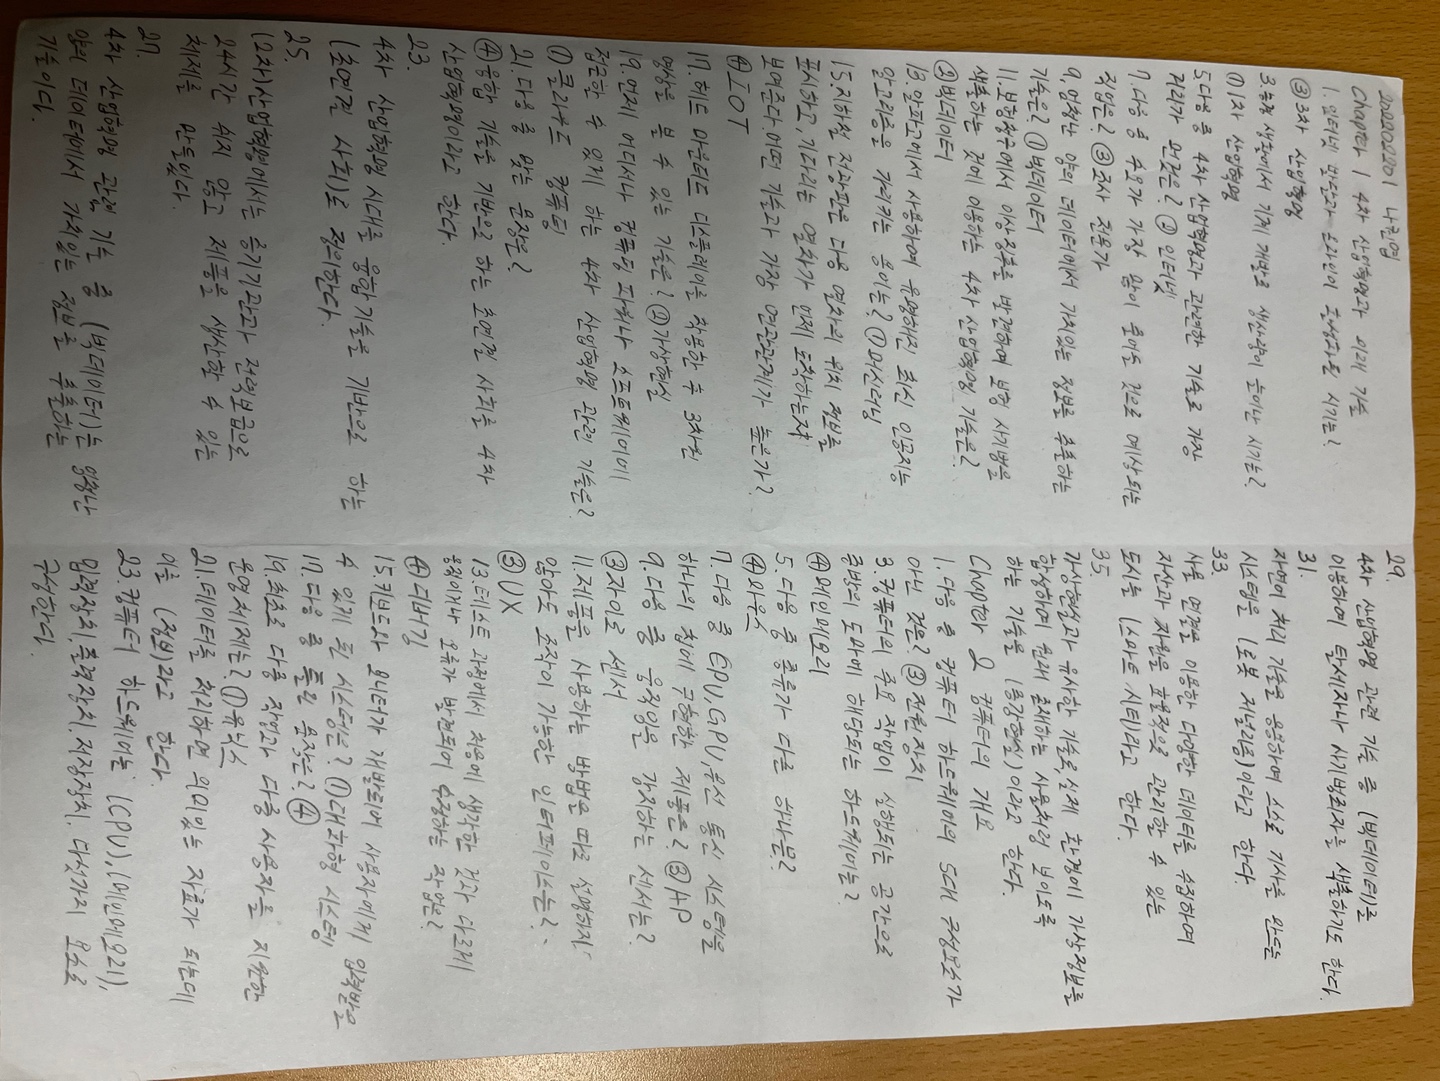 202202201 나찬엽
Chapter 1 4차 산업혁명과 미래 기술
1. 인터넷 발달과 온라인이 활성화된 시기는?
③3차 산업혁명
3.농경 생활에서 기계 개발로 생산량이 늘어난 시기는?
①1차 산업혁명
5.다음 중 4차 산업혁명과 관련한 기술로 가장
거리가 먼것은? ② 인터넷
7.다음 중 수요가 가장 많이 줄어들 것으로 예상되는
직업은? ③조사 전문가
9.엄청난 양의 데이터에서 가치있는 정보를 추출하는
기술은? ①빅데이터
11.보험청구에서 이상징후를 발견하여 보험 사기범을
색출하는 것에 이용하는 4차 산업혁명 기술은?
②빅데이터
13.알파고에서 사용하여 유명해진 최신 인공지능
알고리즘을 가리키는 용어는? ①머신러닝
15.지하철 전광판은 다음 열차의 위치 정보를
표시하고,기다리는 열차가 언제 도착하는지
보여준다.어떤 기술과 가장 연관관계가 높은가?
④IOT
17.헤드 마운티드 디스플레이를 착용한 후 3차원
영상을 볼 수 있는 기술은? ②가상현실
19.언제 어디서나 컴퓨팅 파워나 소프트웨어에
접근할 수 있게 하는 4차 산업혁명 관련 기술은?
①클라우드 컴퓨팅
21.다음 중 맞는 문장은?
④융합 기술을 기반으로 하는 초연결 사회를 4차
산업혁명이라고 한다.
23.
4차 산업혁명 시대를 융합기술을 기반으로 하는
(초연결 사회)로 정의한다.
25.
(2차)산업혁명에서는 증기기관과 전력보급으로
24시간 쉬지 않고 제품을 생산할 수 있는
체제를 만들었다.
27.
4차 산업혁명 관련 기술 중 (빅데이터)는 엄청난
양의 데이터에서 가치있는 정보를 추출하는
기술이다.
29.
4차 산업혁명 관련 기술 중 (빅데이터)를
이용하여 탈세자나 사기범죄자를 색출하기도 한다.
31.
자연어 처리 기술을 응용하여 스스로 기사를 만드는
시스템을 (로봇 저널리즘)이라고 한다.
33.
사물 연결을 이용한 다양한 데이터를 수집하여
자산과 자원을 효율적으로 관리할 수 있는
도시를 (스마트 시티)라고 한다.
35.
가상현실과 유사한 기술로,실제 환경에 가상정보를
합성하여 원래 존재하는 사물처럼 보이도록
하는 기술을 (증강현실)이라고 한다.
Chapter 2 컴퓨터의 개요
1.다음 중 컴퓨터 하드웨어의 5대 구성요소가
아닌 것은? ③전원장치
3.컴퓨터의 주요 작업이 실행되는 공간으로
주방의 도마에 해당되는 하드웨어는?
④메인메모리
5.다음 중 종류가 다른 하나는?
④마우스
7.다음 중 CPU,GPU,무선 통신 시스템을
하나의 칩에 구현한 제품은? ③AP
9.다음 중 움직임을 감지하는 센서는?
③자이로 센서
11.제품을 사용하는 방법을 따로 설명하지
않아도 조작이 가능한 인터페이스는?
③UX
13.테스트 과정에서 처음에 생각한 것과 다르게
움직이거나 오류가 발견되어 수정하는 작업은?
④디버깅
15.키보드와 모니터가 개발되어 사용자에게 입력받을
수 있게 된 시스템은? ①대화형 시스템
17.다음 중 틀린 문장은? ④
19.최초로 다중 작업과 다중사용자를 지원한
운영체제는? ①유닉스
21.데이터를 처리하면 의미있는 자료가 되는데
이를 (정보)라고 한다.
23.컴퓨터 하드웨어는 (CPU),(메인메모리),
입력장치,출력장치,저장장치. 다섯가지 요소로
구성한다.